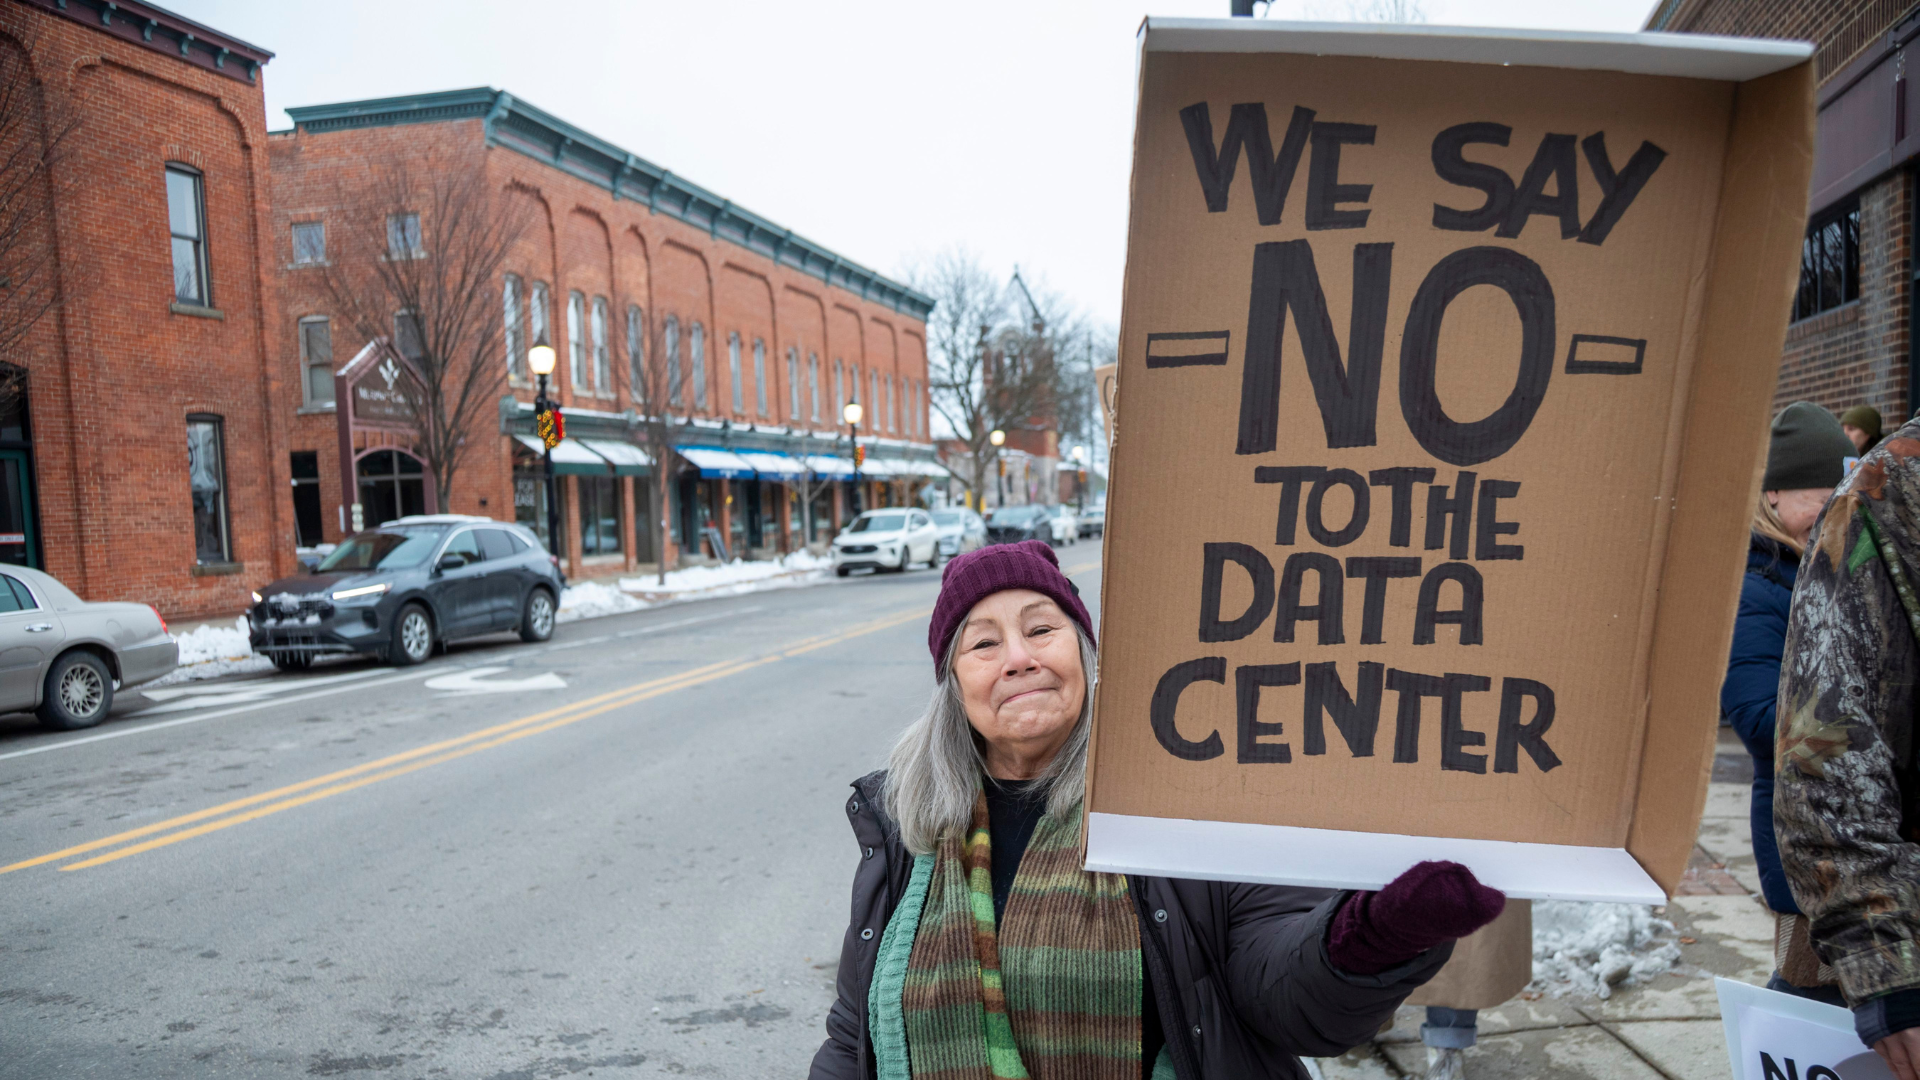 WE SAY
-NO-
TO THE
DATA
CENTER
FOR
LEASE
NO